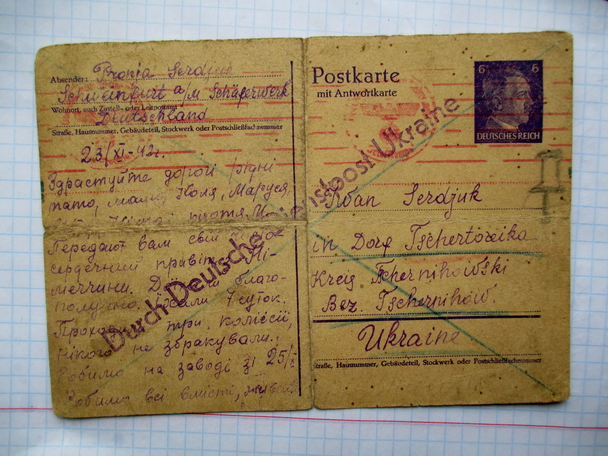 Absender: Bronja Serdjuk
Schweinfurt a/M Schäferwerk
Wohnort, auch Zustell- oder Leitpostamt
Deutschland
Straße, Hausnummer, Gebäudeteil, Stockwerk oder Postschließfachnummer
23/XI-42г.
Здраствуйте дорогі рідні
тато, мама, Коля, Маруся,
Передаю вам свій
сердечний привіт з Ні-
меччини. благо-
получно. Їхали 7 суток.
Проходили три колісії,
нікого не збракували.
Робимо на заводі зі 25/
Робимо всі вмісті,
Durch Deutsche Dienstpost Ukraine
Postkarte
mit Antwortkarte
6 6
DEUTSCHES REICH
Iwan Serdjuk
in Dorf Tschertoreika
Kreis Tschernihowski
Bez. Tschernihow.
Ukraine
Straße, Hausnummer, Gebäudeteil, Stockwerk oder Postschließfachnummer